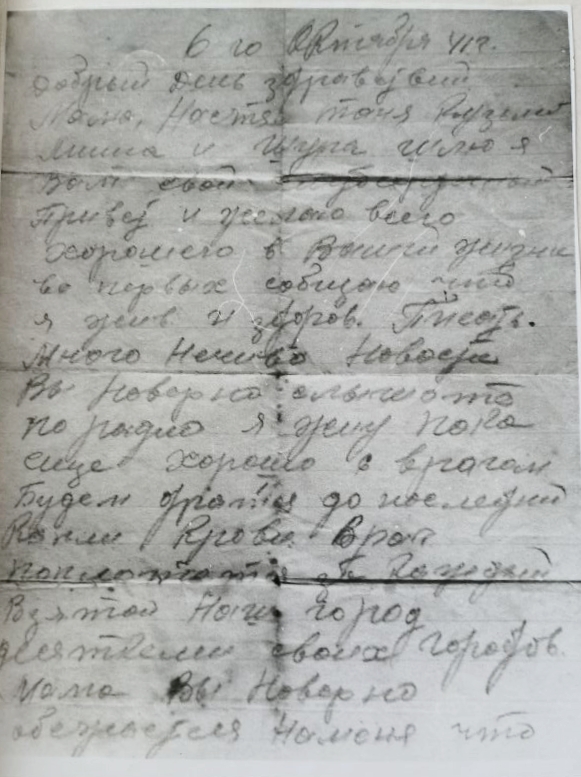 6 го Октября 41 г.
Добрый день здравствуй
Мама, Настя таня Кузьма
миша и Шура шлю я
Вам свой
Привет и желаю всего
хорошего в Вашей жизни
во первых сообщаю что
я жив и здоров. Писать
много Нечиво Новости
Вы Новорно слышите
по радио я живу пока
еще хорошо с врагом
Будем драться до последний
Капли Крови Враг
за Каждый
Взятой Наш город
десятками своих городов.
Мама Вы Новорно
обежаетесь Наменя что